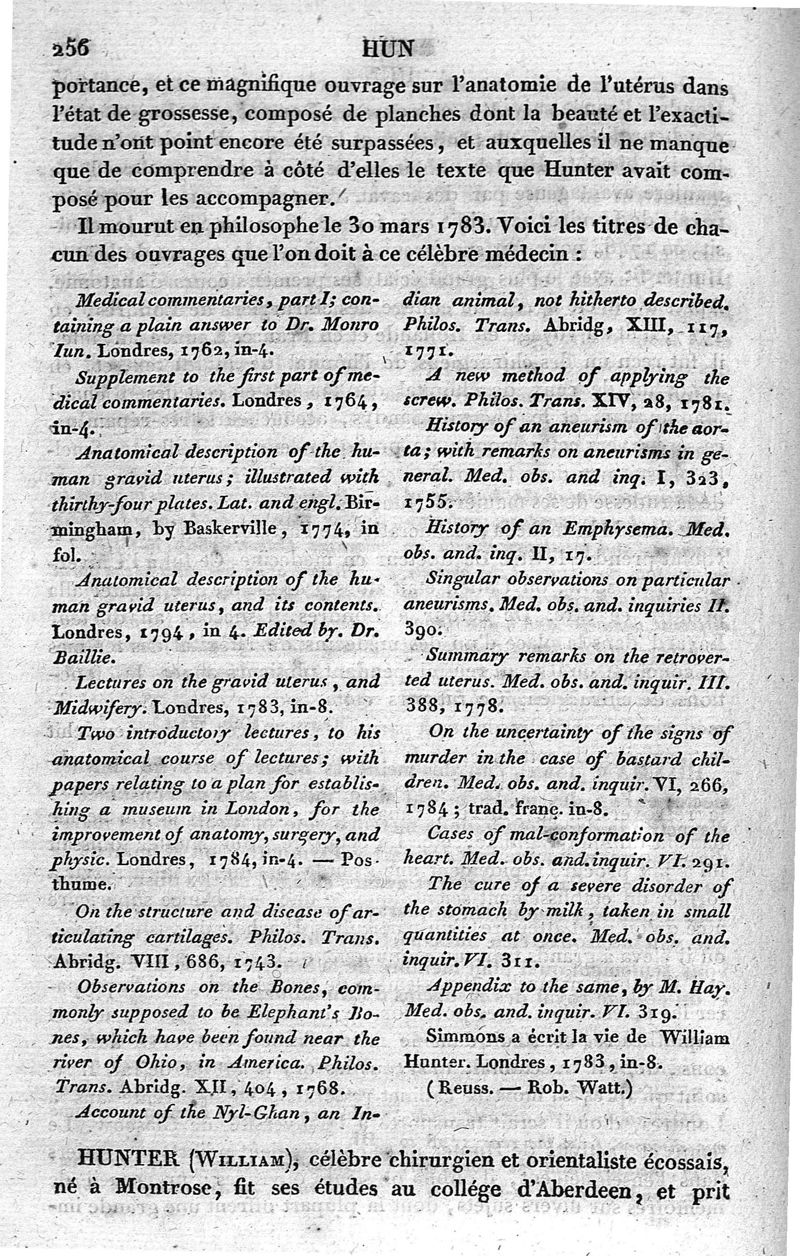 256 HUN
portance, et ce magnifique ouvrage sur l'anatomie de l'utérus dans
l'état de grossesse, composé de planches dont la beauté et l'exacti-
tude n'ont point encore été surpassées, et auxquelles il ne manque
que de comprendre à côté d'elles le texte que Hunter avait com-
posé pour les accompagner.
Il mourut en philosophe le 30 mars 1783. Voici les titres de cha-
cun des ouvrages que l'on doit à ce célèbre médecin :
Medical commentaries, part I; con-
taining a plain answer to Dr. Monro
Iun. Londres, 1762, in-4.
Supplement to the first part of me-
dical commentaries. Londres, 1764,
in-4.
Anatomical description of the hu-
man gravid uterus; illustrated with
thirthy-four plates. Lat. and engl. Bir-
mingham, by Baskerville, 1774, in
fol.
Anatomical description of the hu-
man gravid uterus, and its contents.
Londres, 1794, in 4. Edited by. Dr.
Baillie.
Lectures on the gravid uterus, and
Midwifery. Londres, 1783, in-8.
Two introductory lectures, to his
anatomical course of lectures; with
papers relating to a plan for establis-
hing a museum in London, for the
improvement of anatomy, surgery, and
physic. Londres, 1784, in-4. — Pos-
thume.
On the structure and disease of ar-
ticulating cartilages. Philos. Trans.
Abridg. VIII, 686, 1743.
Observations on the Bones, com-
monly supposed to be Elephant's Bo-
nes, which have been found near the
river of Ohio, in America. Philos.
Trans. Abridg. XII, 404, 1768.
Account of the Nyl-Ghan, an In-
dian animal, not hitherto described.
Philos. Trans. Abridg, XIII, 117,
1771.
A new method of applying the
screw. Philos. Trans. XIV, 28, 1781.
History of an aneurism of the aor-
ta; with remarks on aneurisms in ge-
neral. Med. obs. and inq. I, 323,
1755.
History of an Emphysema. Med.
obs. and. inq. II, 17.
Singular observations on particular
aneurisms. Med. obs. and. inquiries II.
390.
Summary remarks on the retrover-
ted uterus. Med. obs. and. inquir. III.
388, 1778.
On the uncertainty of the signs of
murder in the case of bastard chil-
dren. Med. obs. and. inquir. VI, 266,
1784; trad. franç. in-8.
Cases of mal-conformation of the
heart. Med. obs. and. inquir. VI. 291.
The cure of a severe disorder of
the stomach by milk, taken in small
quantities at once. Med. obs. and.
inquir. VI. 311.
Appendix to the same, by M. Hay.
Med. obs. and. inquir. VI. 319.
Simmons a écrit la vie de William
Hunter. Londres, 1783, in-8.
(Reuss. — Rob. Watt.)
HUNTER (WILLIAM), célèbre chirurgien et orientaliste écossais,
né à Montrose, fit ses études au collége d'Aberdeen, et prit